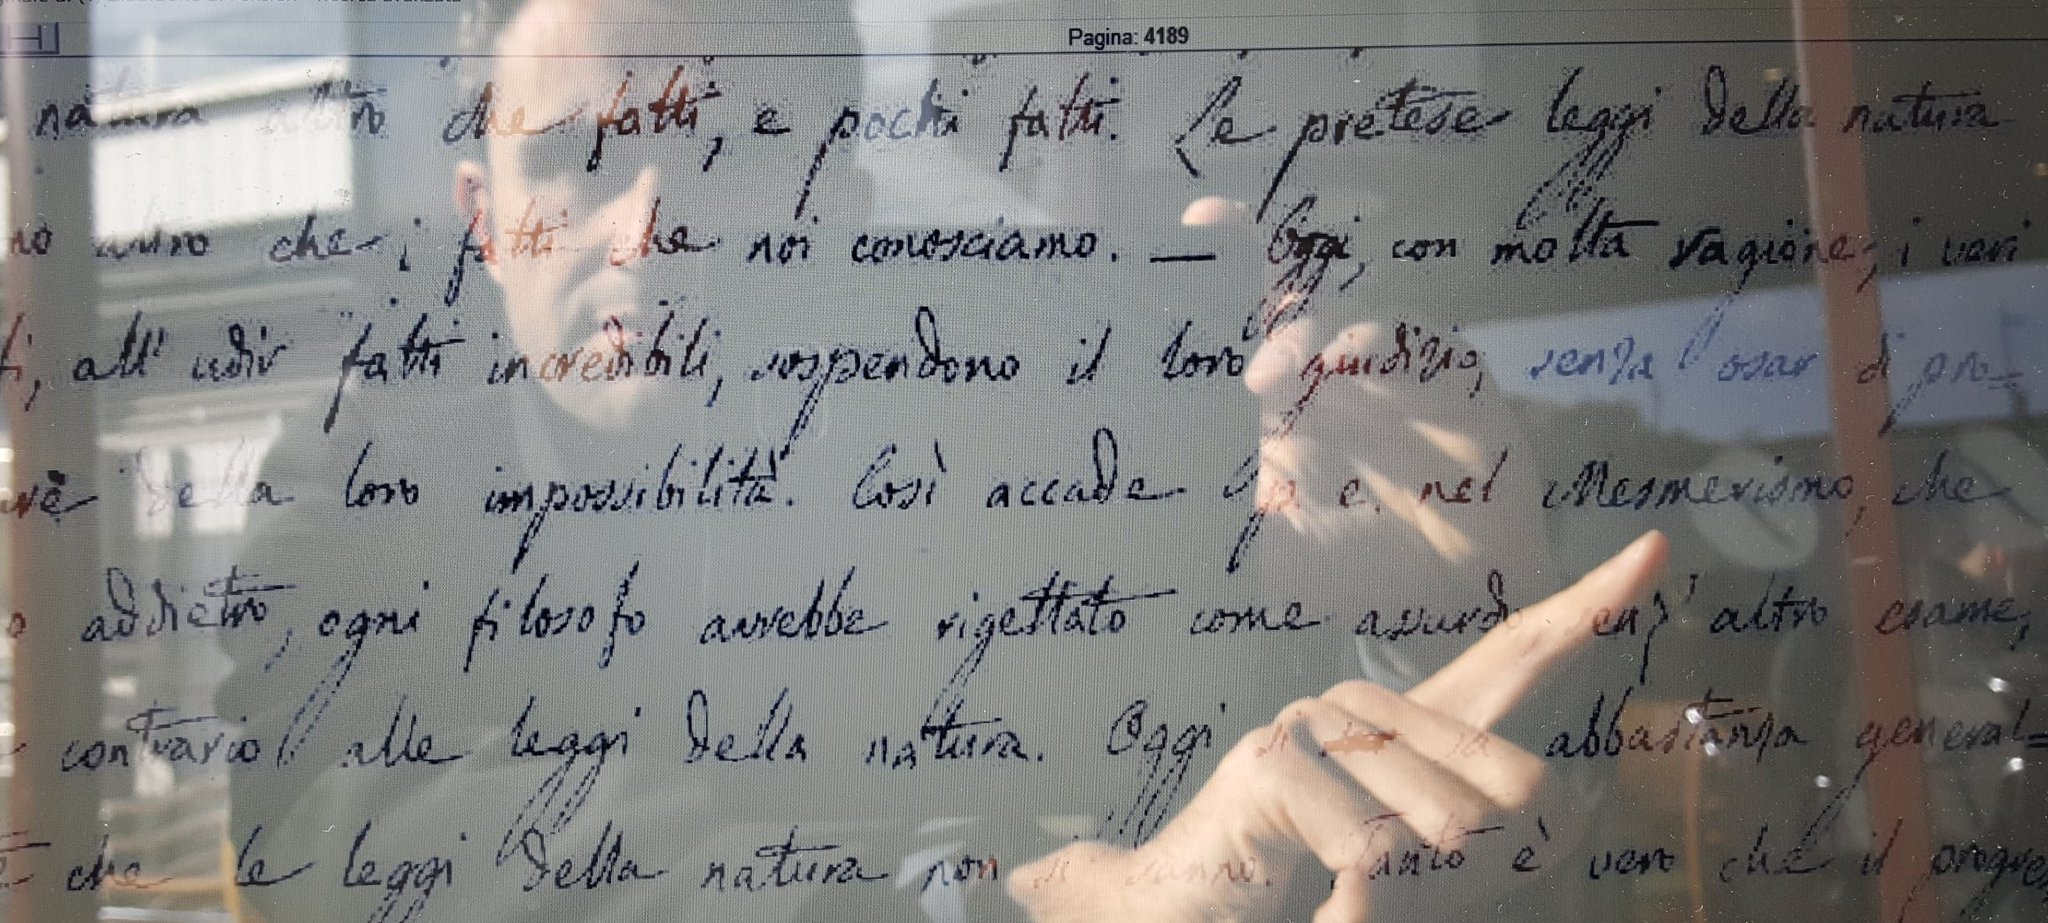 Pagina: 4189
natura altro che fatti, e pochi fatti. Le pretese leggi della natura
no altro che i fatti che noi conosciamo. — Oggi, con molta ragione, i veri
fi, all' udir fatti incredibili, sospendono il loro giudizio, senza osar di pro=
della loro impossibilità. Così accade p. e. nel Mesmerismo, che
addietro, ogni filosofo avrebbe rigettato come assurdo senz' altro esame,
contrario alle leggi della natura. Oggi si sa abbastanza general=
che le leggi della natura non si sanno. Tanto è vero che il progre